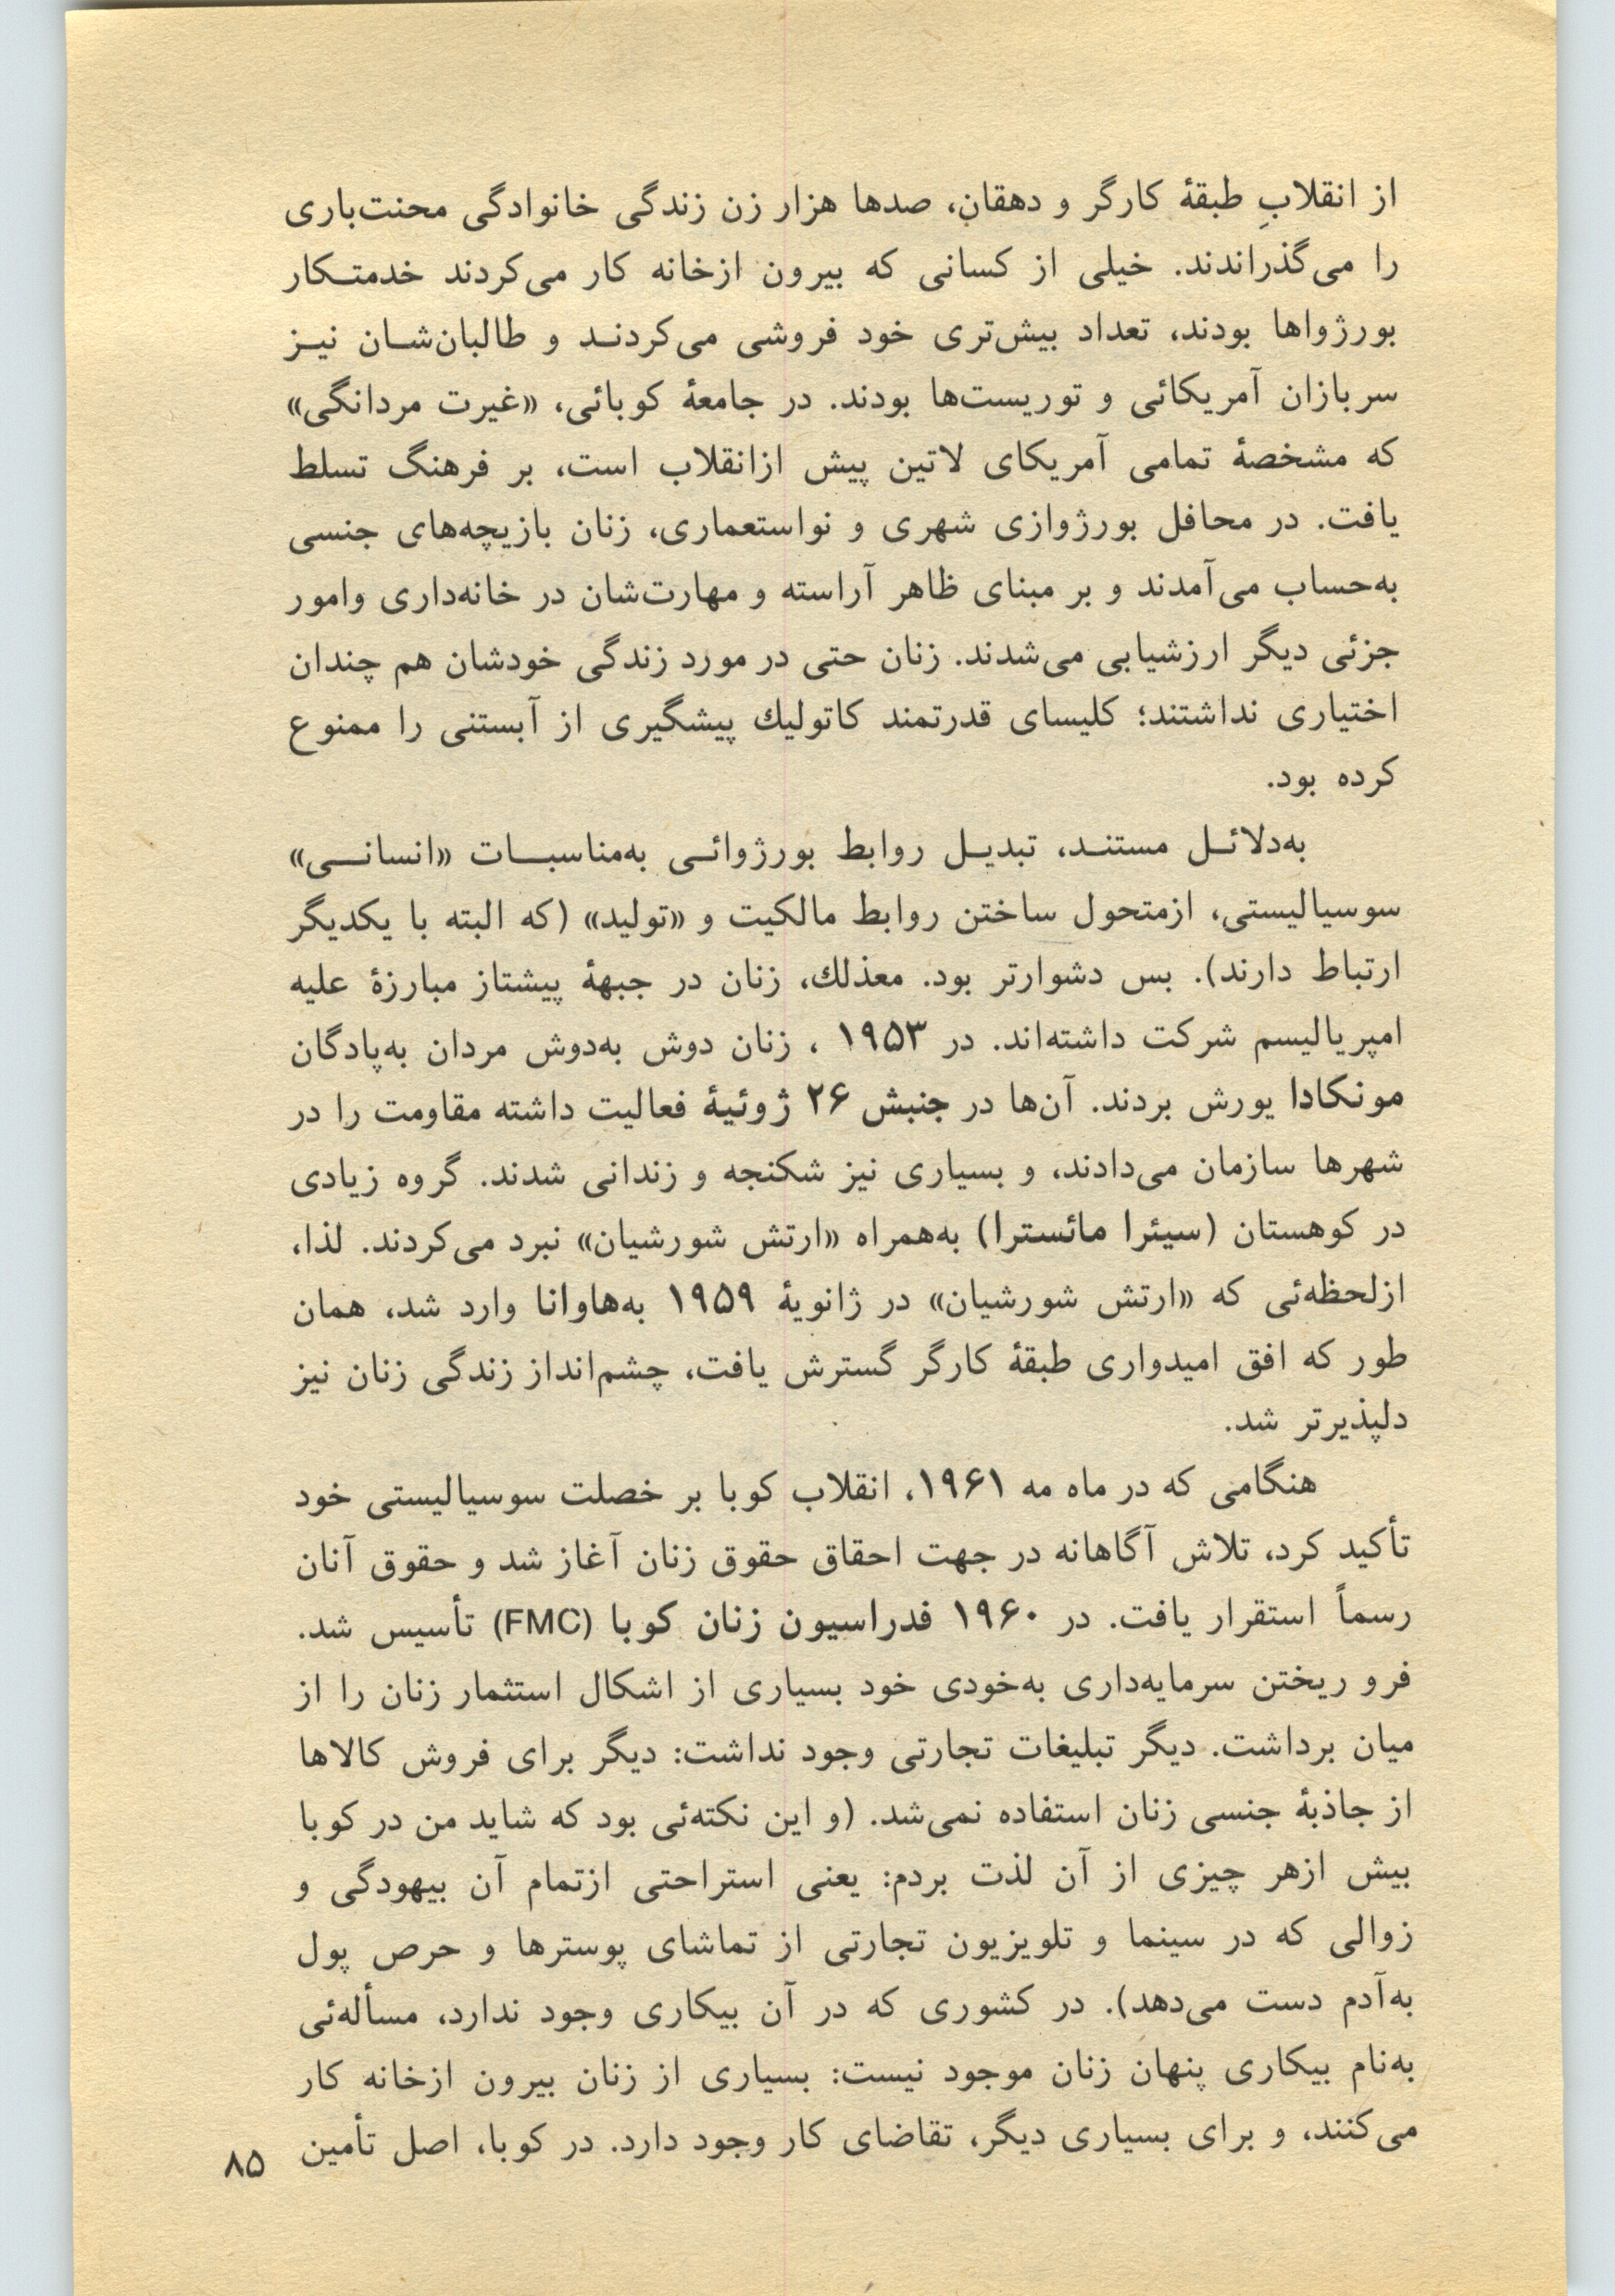 از انقلابِ طبقهٔ کارگر و دهقان، صدها هزار زن زندگی خانوادگی محنت‌باری
را می‌گذراندند. خیلی از کسانی که بیرون ازخانه کار می‌کردند خدمتـکار
بورژواها بودند، تعداد بیش‌تری خود فروشی می‌کردنـد و طالبان‌شـان نیـز
سربازان آمریکائی و توریست‌ها بودند. در جامعهٔ کوبائی، «غیرت مردانگی»
که مشخصهٔ تمامی آمریکای لاتین پیش ازانقلاب است، بر فرهنگ تسلط
یافت. در محافل بورژوازی شهری و نواستعماری، زنان بازیچه‌های جنسی
به‌حساب می‌آمدند و بر مبنای ظاهر آراسته و مهارت‌شان در خانه‌داری وامور
جزئی دیگر ارزشیابی می‌شدند. زنان حتی در مورد زندگی خودشان هم چندان
اختیاری نداشتند؛ کلیسای قدرتمند کاتولیك پیشگیری از آبستنی را ممنوع
کرده بود.
به‌دلائـل مستنـد، تبدیـل روابط بورژوائـی به‌مناسبـات «انسانـی»
سوسیالیستی، ازمتحول ساختن روابط مالکیت و «تولید» (که البته با یکدیگر
ارتباط دارند). بس دشوارتر بود. معذلك، زنان در جبههٔ پیشتاز مبارزهٔ علیه
امپریالیسم شرکت داشته‌اند. در ۱۹۵۳ ، زنان دوش به‌دوش مردان به‌پادگان
مونکادا یورش بردند. آن‌ها در جنبش ۲۶ ژوئیهٔ فعالیت داشته مقاومت را در
شهرها سازمان می‌دادند، و بسیاری نیز شکنجه و زندانی شدند. گروه زیادی
در کوهستان (سیئرا مائسترا) به‌همراه «ارتش شورشیان» نبرد می‌کردند. لذا،
ازلحظه‌ئی که «ارتش شورشیان» در ژانویهٔ ۱۹۵۹ به‌هاوانا وارد شد، همان
طور که افق امیدواری طبقهٔ کارگر گسترش یافت، چشم‌انداز زندگی زنان نیز
دلپذیرتر شد.
هنگامی که در ماه مه ۱۹۶۱، انقلاب کوبا بر خصلت سوسیالیستی خود
تأکید کرد، تلاش آگاهانه در جهت احقاق حقوق زنان آغاز شد و حقوق آنان
رسماً استقرار یافت. در ۱۹۶۰ فدراسیون زنان کوبا (FMC) تأسیس شد.
فرو ریختن سرمایه‌داری به‌خودی خود بسیاری از اشکال استثمار زنان را از
میان برداشت. دیگر تبلیغات تجارتی وجود نداشت: دیگر برای فروش کالاها
از جاذبهٔ جنسی زنان استفاده نمی‌شد. (و این نکته‌ئی بود که شاید من در کوبا
بیش ازهر چیزی از آن لذت بردم: یعنی استراحتی ازتمام آن بیهودگی و
زوالی که در سینما و تلویزیون تجارتی از تماشای پوسترها و حرص پول
به‌آدم دست می‌دهد). در کشوری که در آن بیکاری وجود ندارد، مسأله‌ئی
به‌نام بیکاری پنهان زنان موجود نیست: بسیاری از زنان بیرون ازخانه کار
می‌کنند، و برای بسیاری دیگر، تقاضای کار وجود دارد. در کوبا، اصل تأمین
۸۵